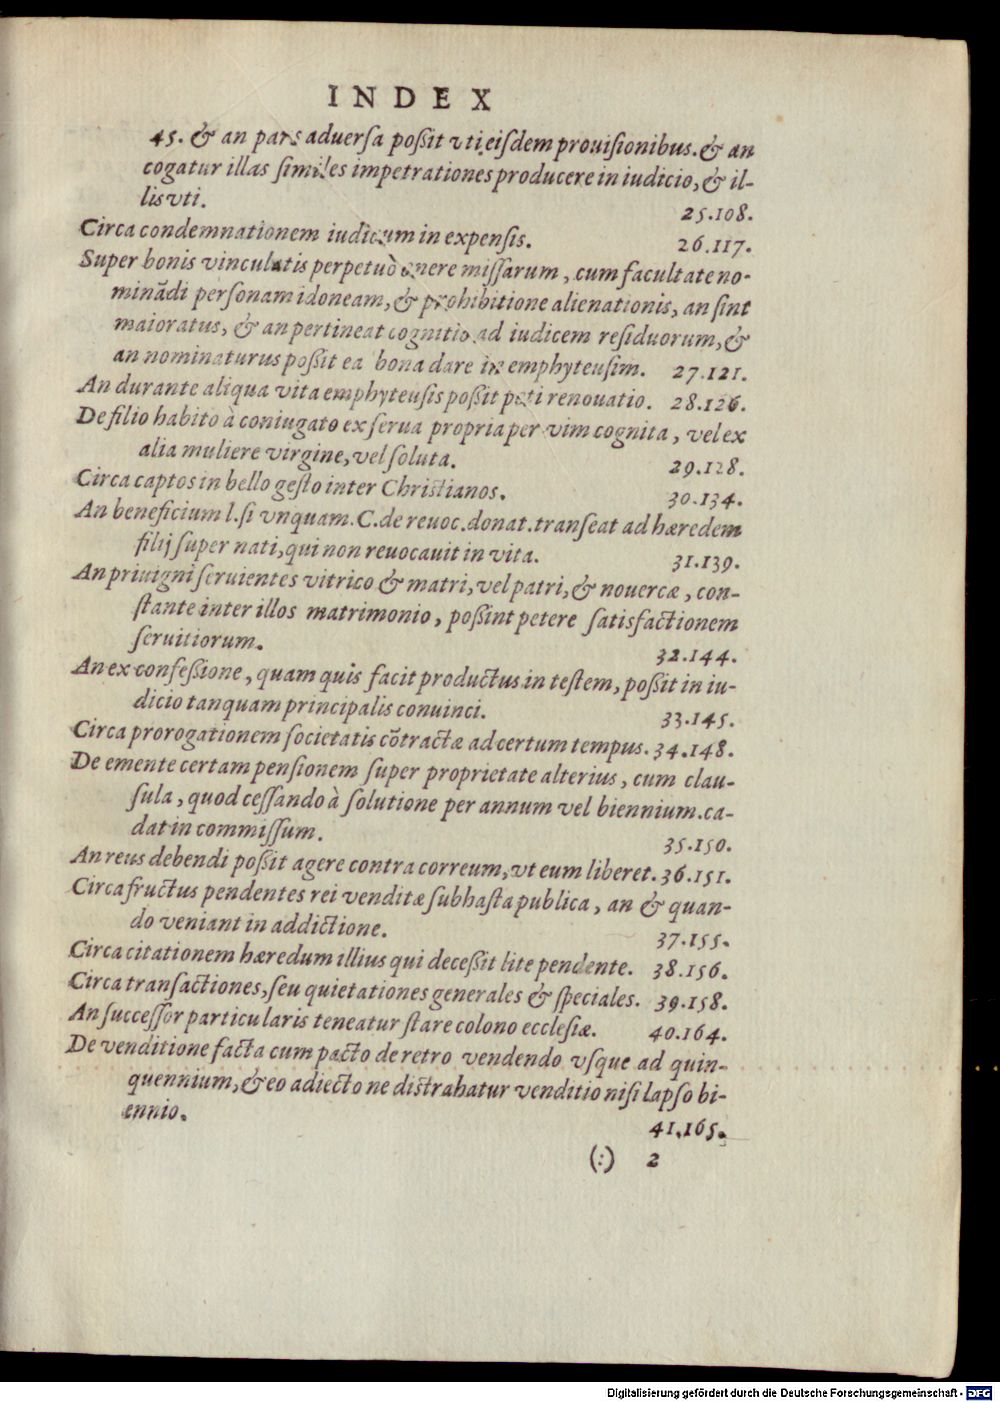 INDEX
45. & an pars aduersa poßit vti eisdem prouisionibus. & an
cogatur illas similes impetrationes producere in iudicio, & il-
lis vti. 25.108.
Circa condemnationem iudicum in expensis. 26.117.
Super bonis vinculatis perpetuò onere missarum, cum facultate no-
minãdi personam idoneam, & prohibitione alienationis, an sint
maioratus, & an pertineat cognitio ad iudicem residuorum, &
an nominaturus poßit ea bona dare in emphyteusim. 27.121.
An durante aliqua vita emphyteusis poßit peti renouatio. 28.126.
De filio habito à coniugato ex serua propria per vim cognita, vel ex
alia muliere virgine, vel soluta. 29.128.
Circa captos in bello gesto inter Christianos. 30.134.
An beneficium l. si vnquam. C. de reuoc. donat. transeat ad hæredem
filij super nati, qui non reuocauit in vita. 31.139.
An priuigni seruientes vitrico & matri, vel patri, & nouercæ, con-
stante inter illos matrimonio, poßint petere satisfactionem
seruitiorum. 32.144.
An ex confeßione, quam quis facit productus in testem, poßit in iu-
dicio tanquam principalis conuinci. 33.145.
Circa prorogationem societatis cõtractæ ad certum tempus. 34.148.
De emente certam pensionem super proprietate alterius, cum clau-
sula, quod cessando à solutione per annum vel biennium. ca-
dat in commissum. 35.150.
An reus debendi poßit agere contra correum, vt eum liberet. 36.151.
Circa fructus pendentes rei venditæ subhasta publica, an & quan-
do veniant in addictione. 37.155.
Circa citationem hæredum illius qui deceßit lite pendente. 38.156.
Circa transactiones, seu quietationes generales & speciales. 39.158.
An successor particularis teneatur stare colono ecclesiæ. 40.164.
De venditione facta cum pacto de retro vendendo vsque ad quin-
quennium, & eo adiecto ne distrahatur venditio nisi lapso bi-
ennio. 41.165.
(:) 2
Digitalisierung gefördert durch die Deutsche Forschungsgemeinschaft - DFG